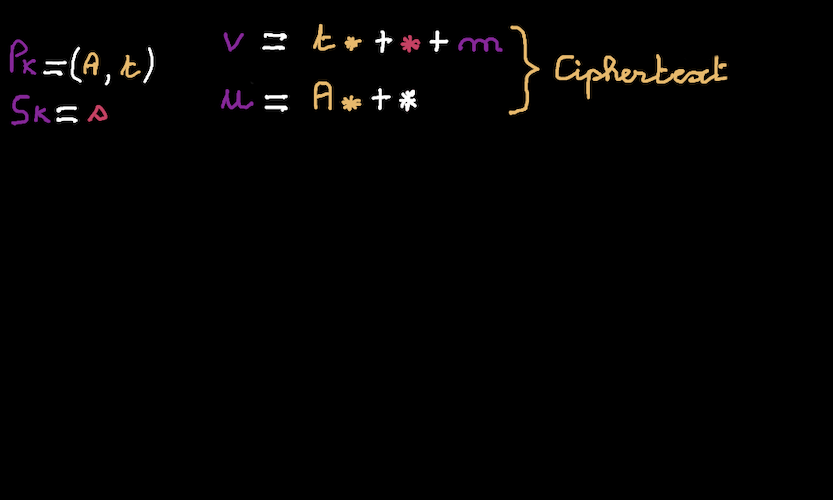 Pk = (A, t)
Sk = s
v = t * + * + m
u = A * + *
} Ciphertext